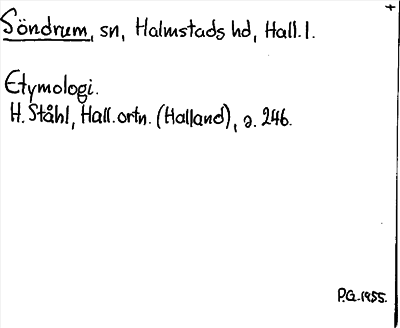 Söndrum, sn, Halmstads hd, Hall. l.
Etymologi.
H. Ståhl, Hall. ortn. (Halland), s. 246.
P.G. 1955.